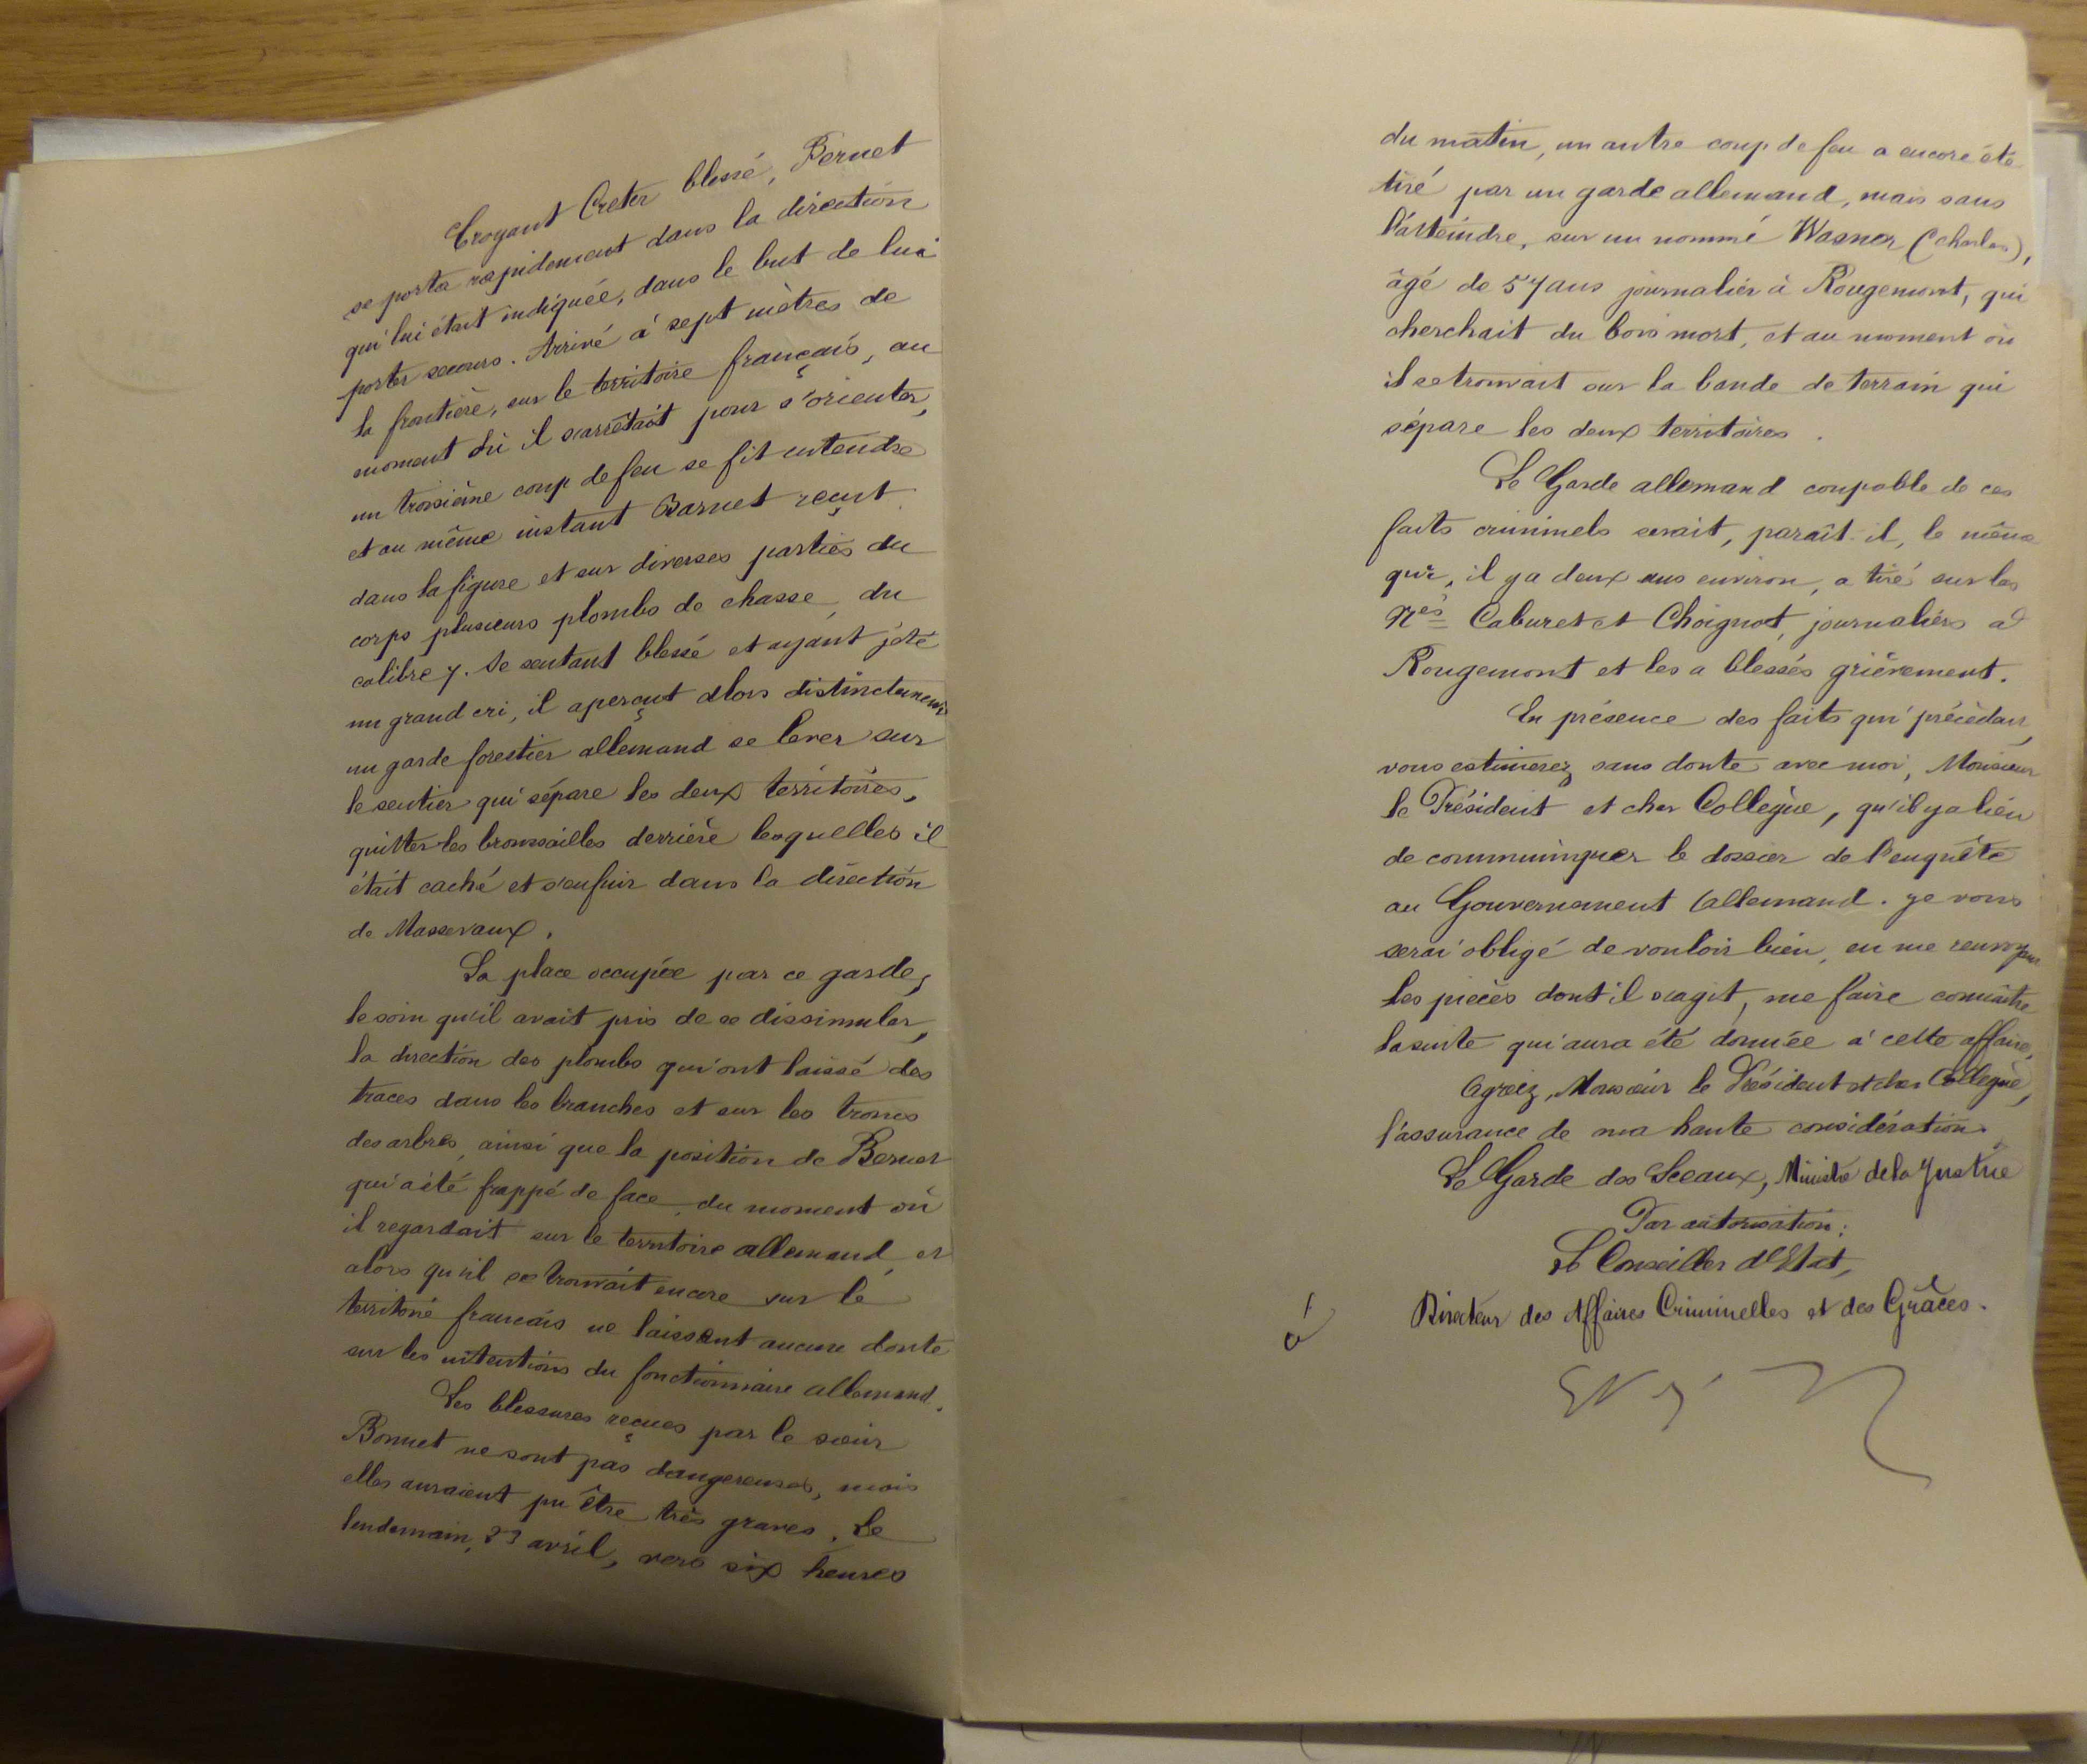 Croyant Creter blessé, Bernet
se porta rapidement dans la direction
qui lui était indiquée, dans le but de lui
porter secours. Arrivé à sept mètres de
la frontière, sur le territoire français, au
moment où il s'arrêtait pour s'orienter,
un troisième coup de feu se fit entendre
et au même instant Bernet reçut
dans la figure et sur diverses parties du
corps plusieurs plombs de chasse, du
calibre 7. Se sentant blessé et ayant jeté
un grand cri, il aperçut alors distinctement
un garde forestier allemand se lever sur
le sentier qui sépare les deux territoires,
quitter les broussailles derrière lesquelles il
était caché et s'enfuir dans la direction
de Massevaux.
La place occupée par ce garde,
le soin qu'il avait pris de se dissimuler,
la direction des plombs qui ont laissé des
traces dans les branches et sur les troncs
des arbres, ainsi que la position de Bernet
qui a été frappé de face, du moment où
il regardait sur le territoire allemand, et
alors qu'il se trouvait encore sur le
territoire français ne laissent aucun doute
sur les intentions du fonctionnaire allemand.
Les blessures reçues par le sieur
Bonnet ne sont pas dangereuses, mais
elles auraient pu être très graves. Le
lendemain, 23 avril, vers six heures
du matin, un autre coup de feu a encore été
tiré par un garde allemand, mais sans
l'atteindre, sur un nommé Wasner (Charles),
âgé de 57 ans journalier à Rougemont, qui
cherchait du bois mort, et au moment où
il se trouvait sur la bande de terrain qui
sépare les deux territoires.
Le Garde allemand coupable de ces
faits criminels serait, paraît-il, le même
qui, il y a deux ans environ, a tiré sur les
Nés Caburet et Choignot, journaliers à
Rougemont et les a blessés grièvement.
En présence des faits qui précèdent,
vous estimerez sans doute avec moi, Monsieur
le Président et cher Collègue, qu'il y a lieu
de communiquer le dossier de l'enquête
au Gouvernement allemand. Je vous
serai obligé de vouloir bien, en me renvoyant
les pièces dont il s'agit, me faire connaître
la suite qui aura été donnée à cette affaire.
Agréez, Monsieur le Président et cher Collègue,
l'assurance de ma haute considération.
Le Garde des Sceaux, Ministre de la Justice
Par autorisation:
Le Conseiller d'Etat,
Directeur des Affaires Criminelles et des Grâces.